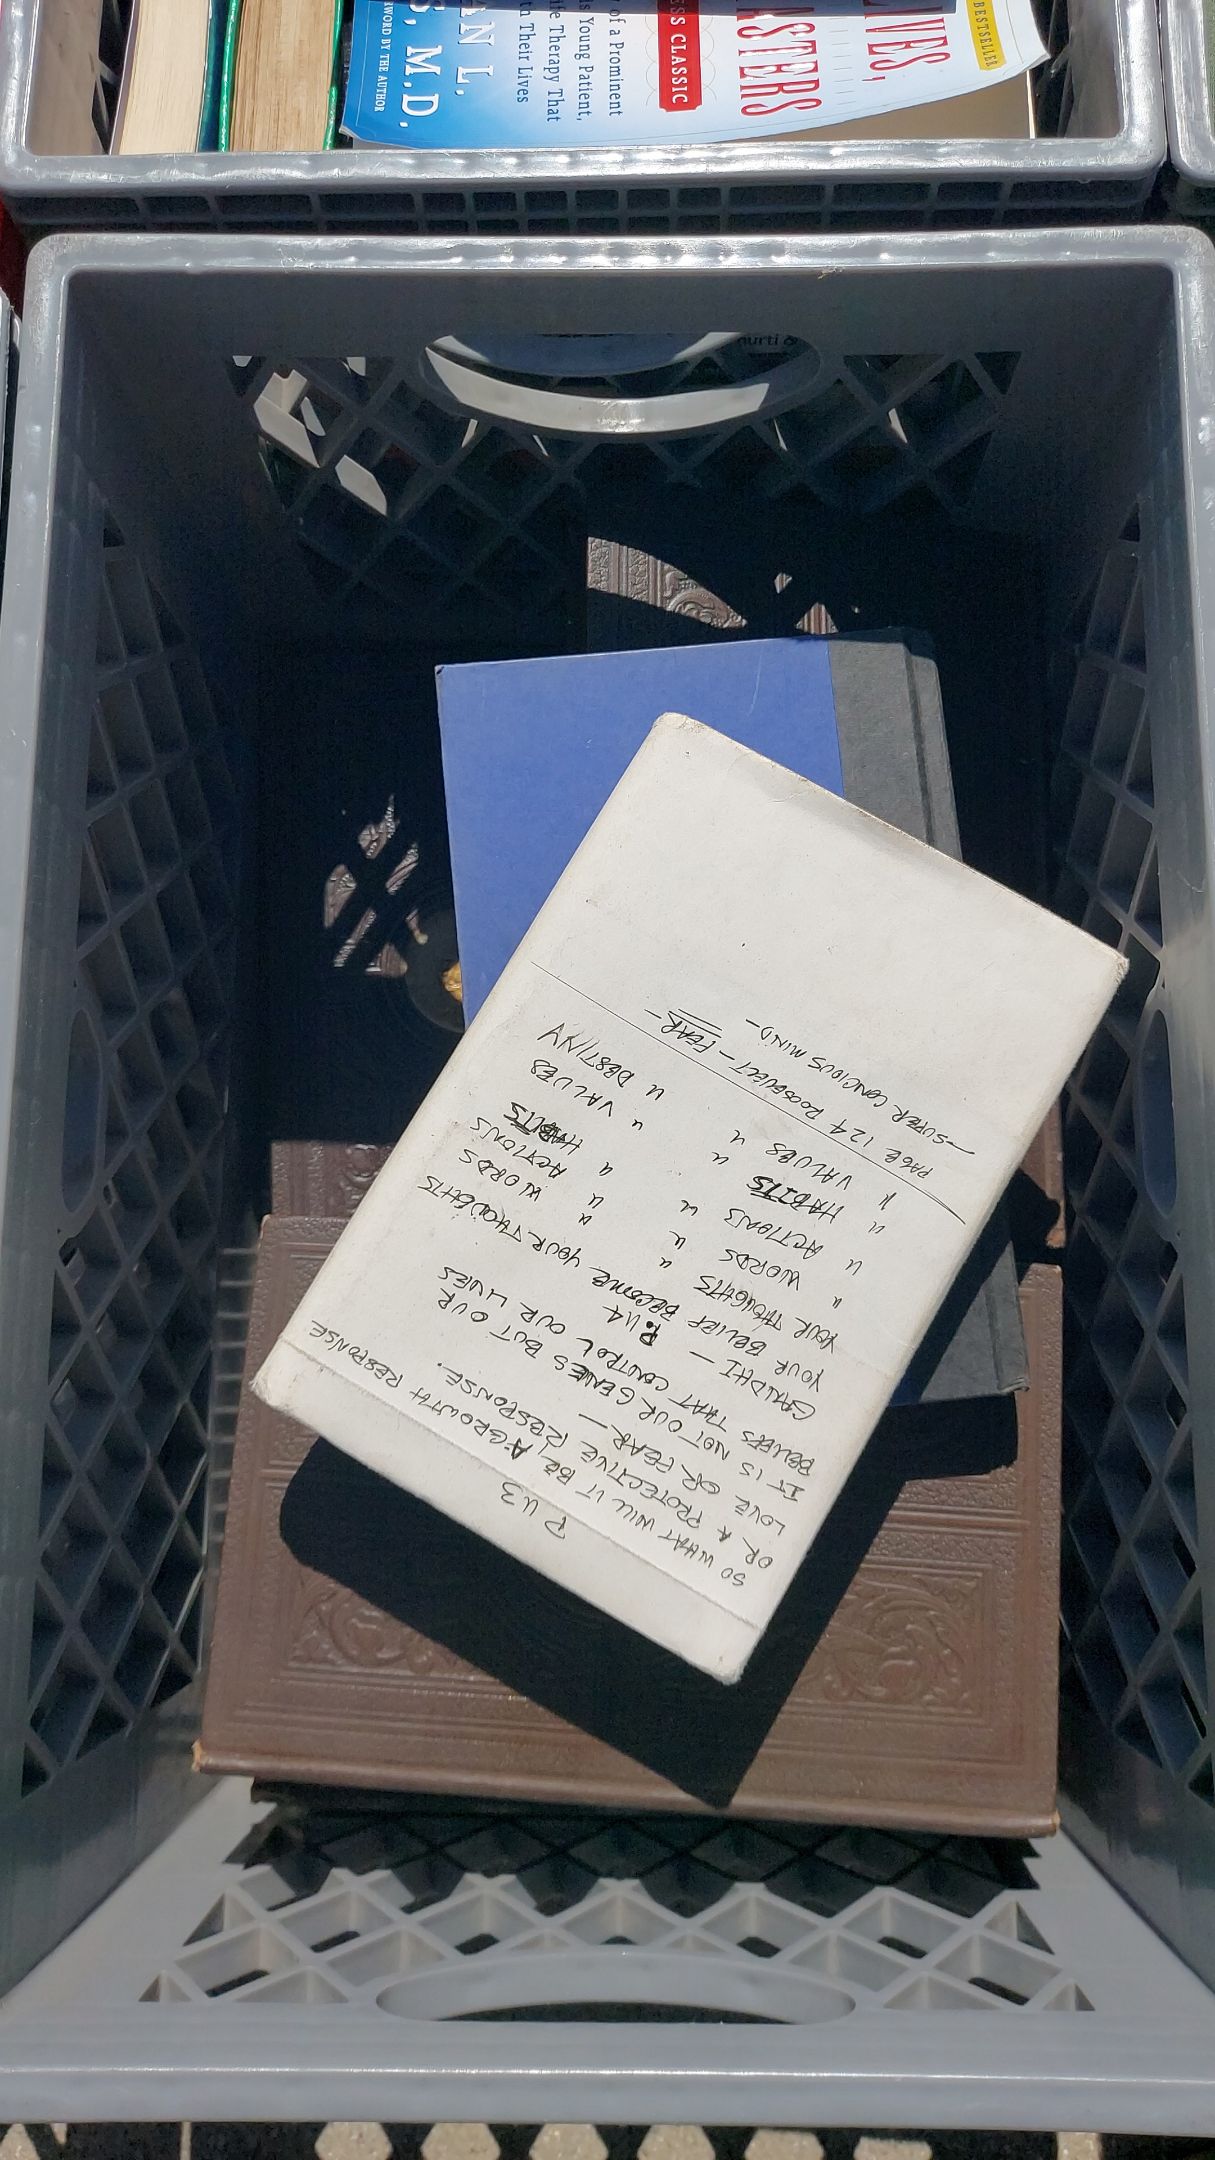 BESTSELLER
IVES,
ASTERS
ESS CLASSIC
of a Prominent
s Young Patient,
ife Therapy That
th Their Lives
AN L.
S, M.D.
RWORD BY THE AUTHOR
urti &
P 113
SO WHAT WILL IT BE, A GROWTH RESPONSE
OR A PROTECTIVE RESPONSE.
LOVE OR FEAR —
IT IS NOT OUR GENES BUT OUR
BELIEFS THAT CONTROL OUR LIVES
GANDHI — P. 114
YOUR BELIEF BECOME YOUR THOUGHTS
YOUR THOUGHTS " " WORDS
" WORDS " " ACTIONS
" ACTIONS " " HABITS
" HABITS " " VALUES
" VALUES " " DESTINY
PAGE 124 ROOSEVELT — FEAR —
— SUPER CONCIOUS MIND —